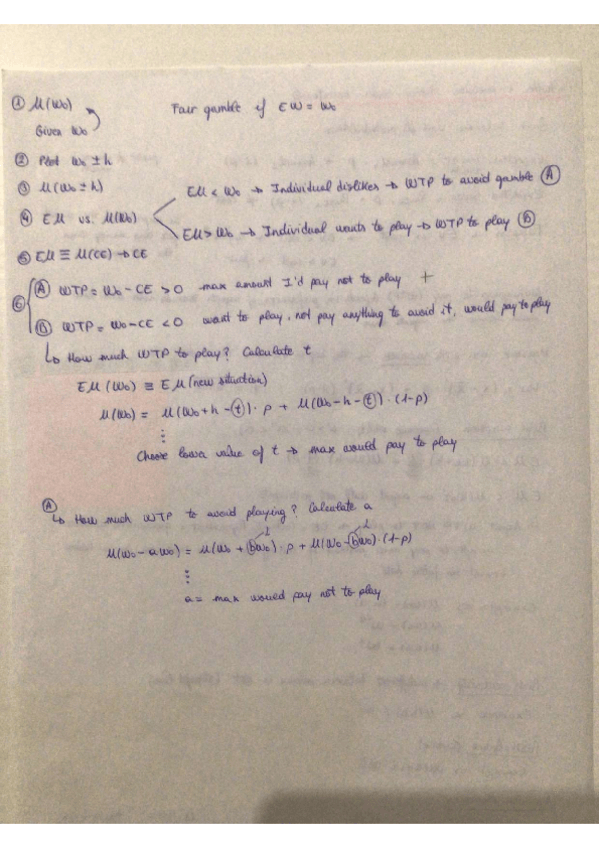 ① μ(W₀) Fair gamble if EW = W₀
Given W₀
② Plot W₀ ± h
③ μ(W₀ ± h)
Eμ < W₀ → Individual dislikes → WTP to avoid gamble Ⓐ
④ Eμ vs. μ(W₀)
Eμ > W₀ → Individual wants to play → WTP to play Ⓑ
⑤ Eμ ≡ μ(CE) → CE
⑥ Ⓐ WTP = W₀ - CE > 0 max amount I'd pay not to play +
Ⓑ WTP = W₀ - CE < 0 want to play, not pay anything to avoid it, would pay to play
↳ How much WTP to play? Calculate t
Eμ(W₀) ≡ Eμ(new situation)
μ(W₀) = μ(W₀ + h - t) · p + μ(W₀ - h - t) · (1-p)
⋮
Choose lower value of t → max would pay to play
Ⓐ
↳ How much WTP to avoid playing? Calculate a
μ(W₀ - aW₀) = μ(W₀ + bW₀) · p + μ(W₀ - bW₀) · (1-p)
⋮
a = max would pay not to play